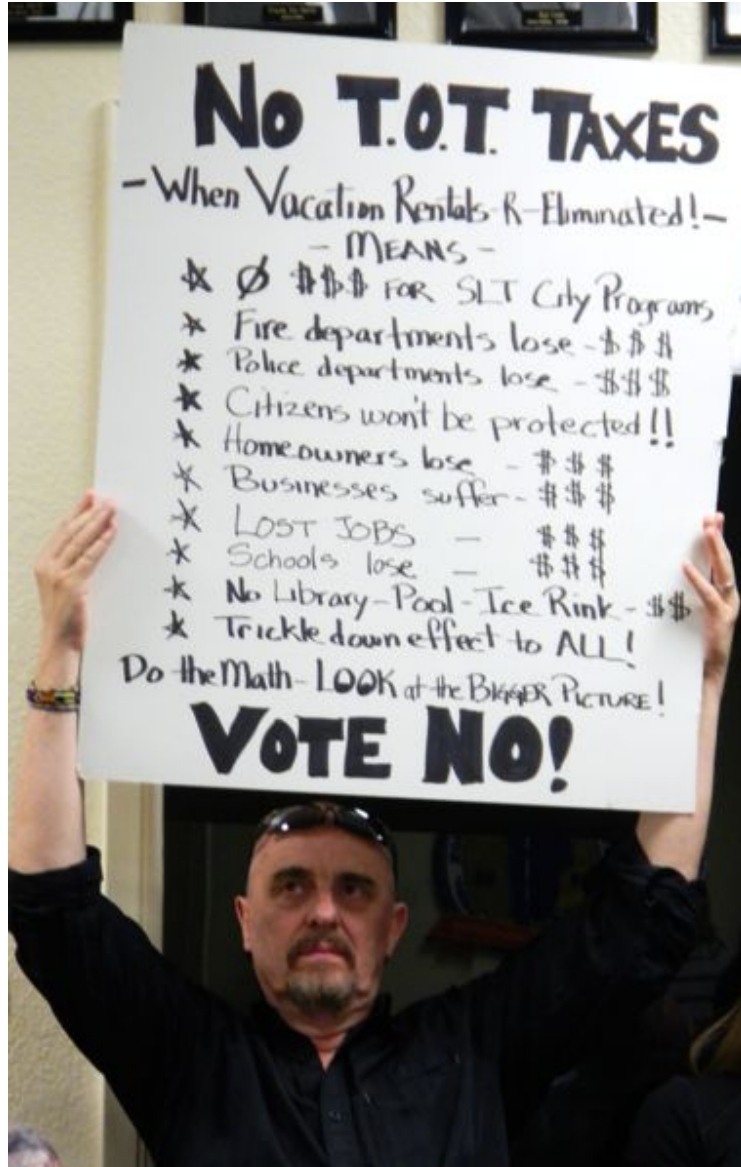 No T.O.T. TAXES
- When Vacation Rentals-R-Eliminated! -
- MEANS -
* Ø $$$ FOR SLT City Programs
* Fire departments lose - $$$
* Police departments lose - $$$
* Citizens won't be protected!!
* Homeowners lose - $$$
* Businesses suffer - $$$
* LOST JOBS - $$$
* Schools lose - $$$
* No Library - Pool - Ice Rink - $$
* Trickle down effect to ALL!
Do the Math - LOOK at the BIGGER PICTURE!
VOTE NO!